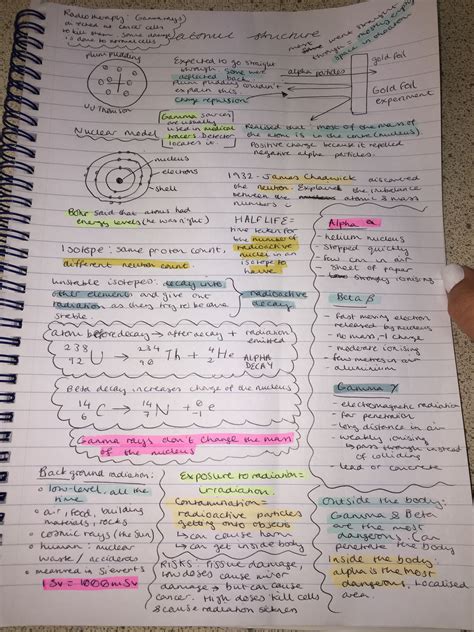 Radiotherapy: Gamma rays
directed at cancer cells
to kill them. Some damage
is done to normal cells
Atomic structure
most went straight
through mostly empty
space in electrons
plum pudding
JJ Thomson
Expected to go straight
through. Some were
deflected back.
Plum pudding couldn't
explain this.
charge repulsion
alpha particles
gold foil
Gold foil
experiment
Nuclear model
nucleus
electrons
shell
Gamma sources
are usually
used in medical
tracers. Detector
locates it.
Realised that: most of the mass of
the atom is in the centre (nucleus)
Positive charge because it repelled
negative alpha particles.
1932 - James Chadwick discovered
the neutron. Explained the imbalance
between the atomic & mass
numbers
Bohr said that atoms had
energy levels (he was right)
Isotope: same proton count,
different neutron count.
HALF LIFE =
time taken for
the number of
radioactive
nuclei in an
isotope to
halve
Unstable isotopes: decay into
other elements and give out
radiation as they try to become
stable
radioactive
decay
atom before decay → after decay + radiation
emitted
238 92 U → 234 90 Th + 4 2 He ALPHA
DECAY
Beta decay increases charge of the nucleus
14 6 C → 14 7 N + 0 -1 e
Gamma rays don't change the mass
of the nucleus
Alpha α
- helium nucleus
- stopped quickly
- few cms in air
- sheet of paper
- strongly ionising
Beta β
- fast moving electron
released by nucleus
- no mass, -1 charge
- moderate ionising
- few metres in air
- aluminium
Gamma γ
- electromagnetic radiation
- far penetration
- long distance in air
- weakly ionising
(pass through instead
of colliding
- lead or concrete
Background radiation:
• low-level, all the
time
• air, food, building
materials, rocks
• cosmic rays (the sun)
• human: nuclear
waste / accidents
• measured in sieverts
1Sv = 1000mSv
Exposure to radiation =
irradiation
Contamination =
radioactive particles
getting onto objects
↳ can cause harm
↳ can get inside body
RISKS: Tissue damage,
low doses cause minor
damage → but can cause
cancer. High doses kill cells
& cause radiation sickness
Outside the body:
Gamma & Beta
are the most
dangerous. Can
penetrate the body
Inside the body:
alpha is the most
dangerous, Localised
area.